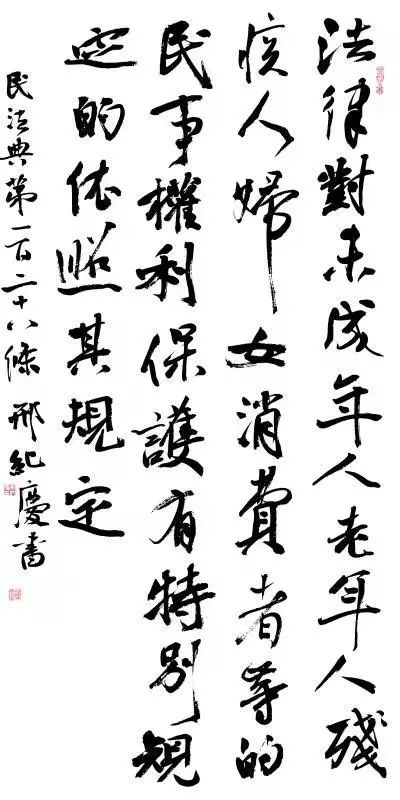 法律對未成年人老年人殘
疾人婦女消費者等的
民事權利保護有特別規
定的依照其規定
民法典第一百二十八條 邢紀慶書